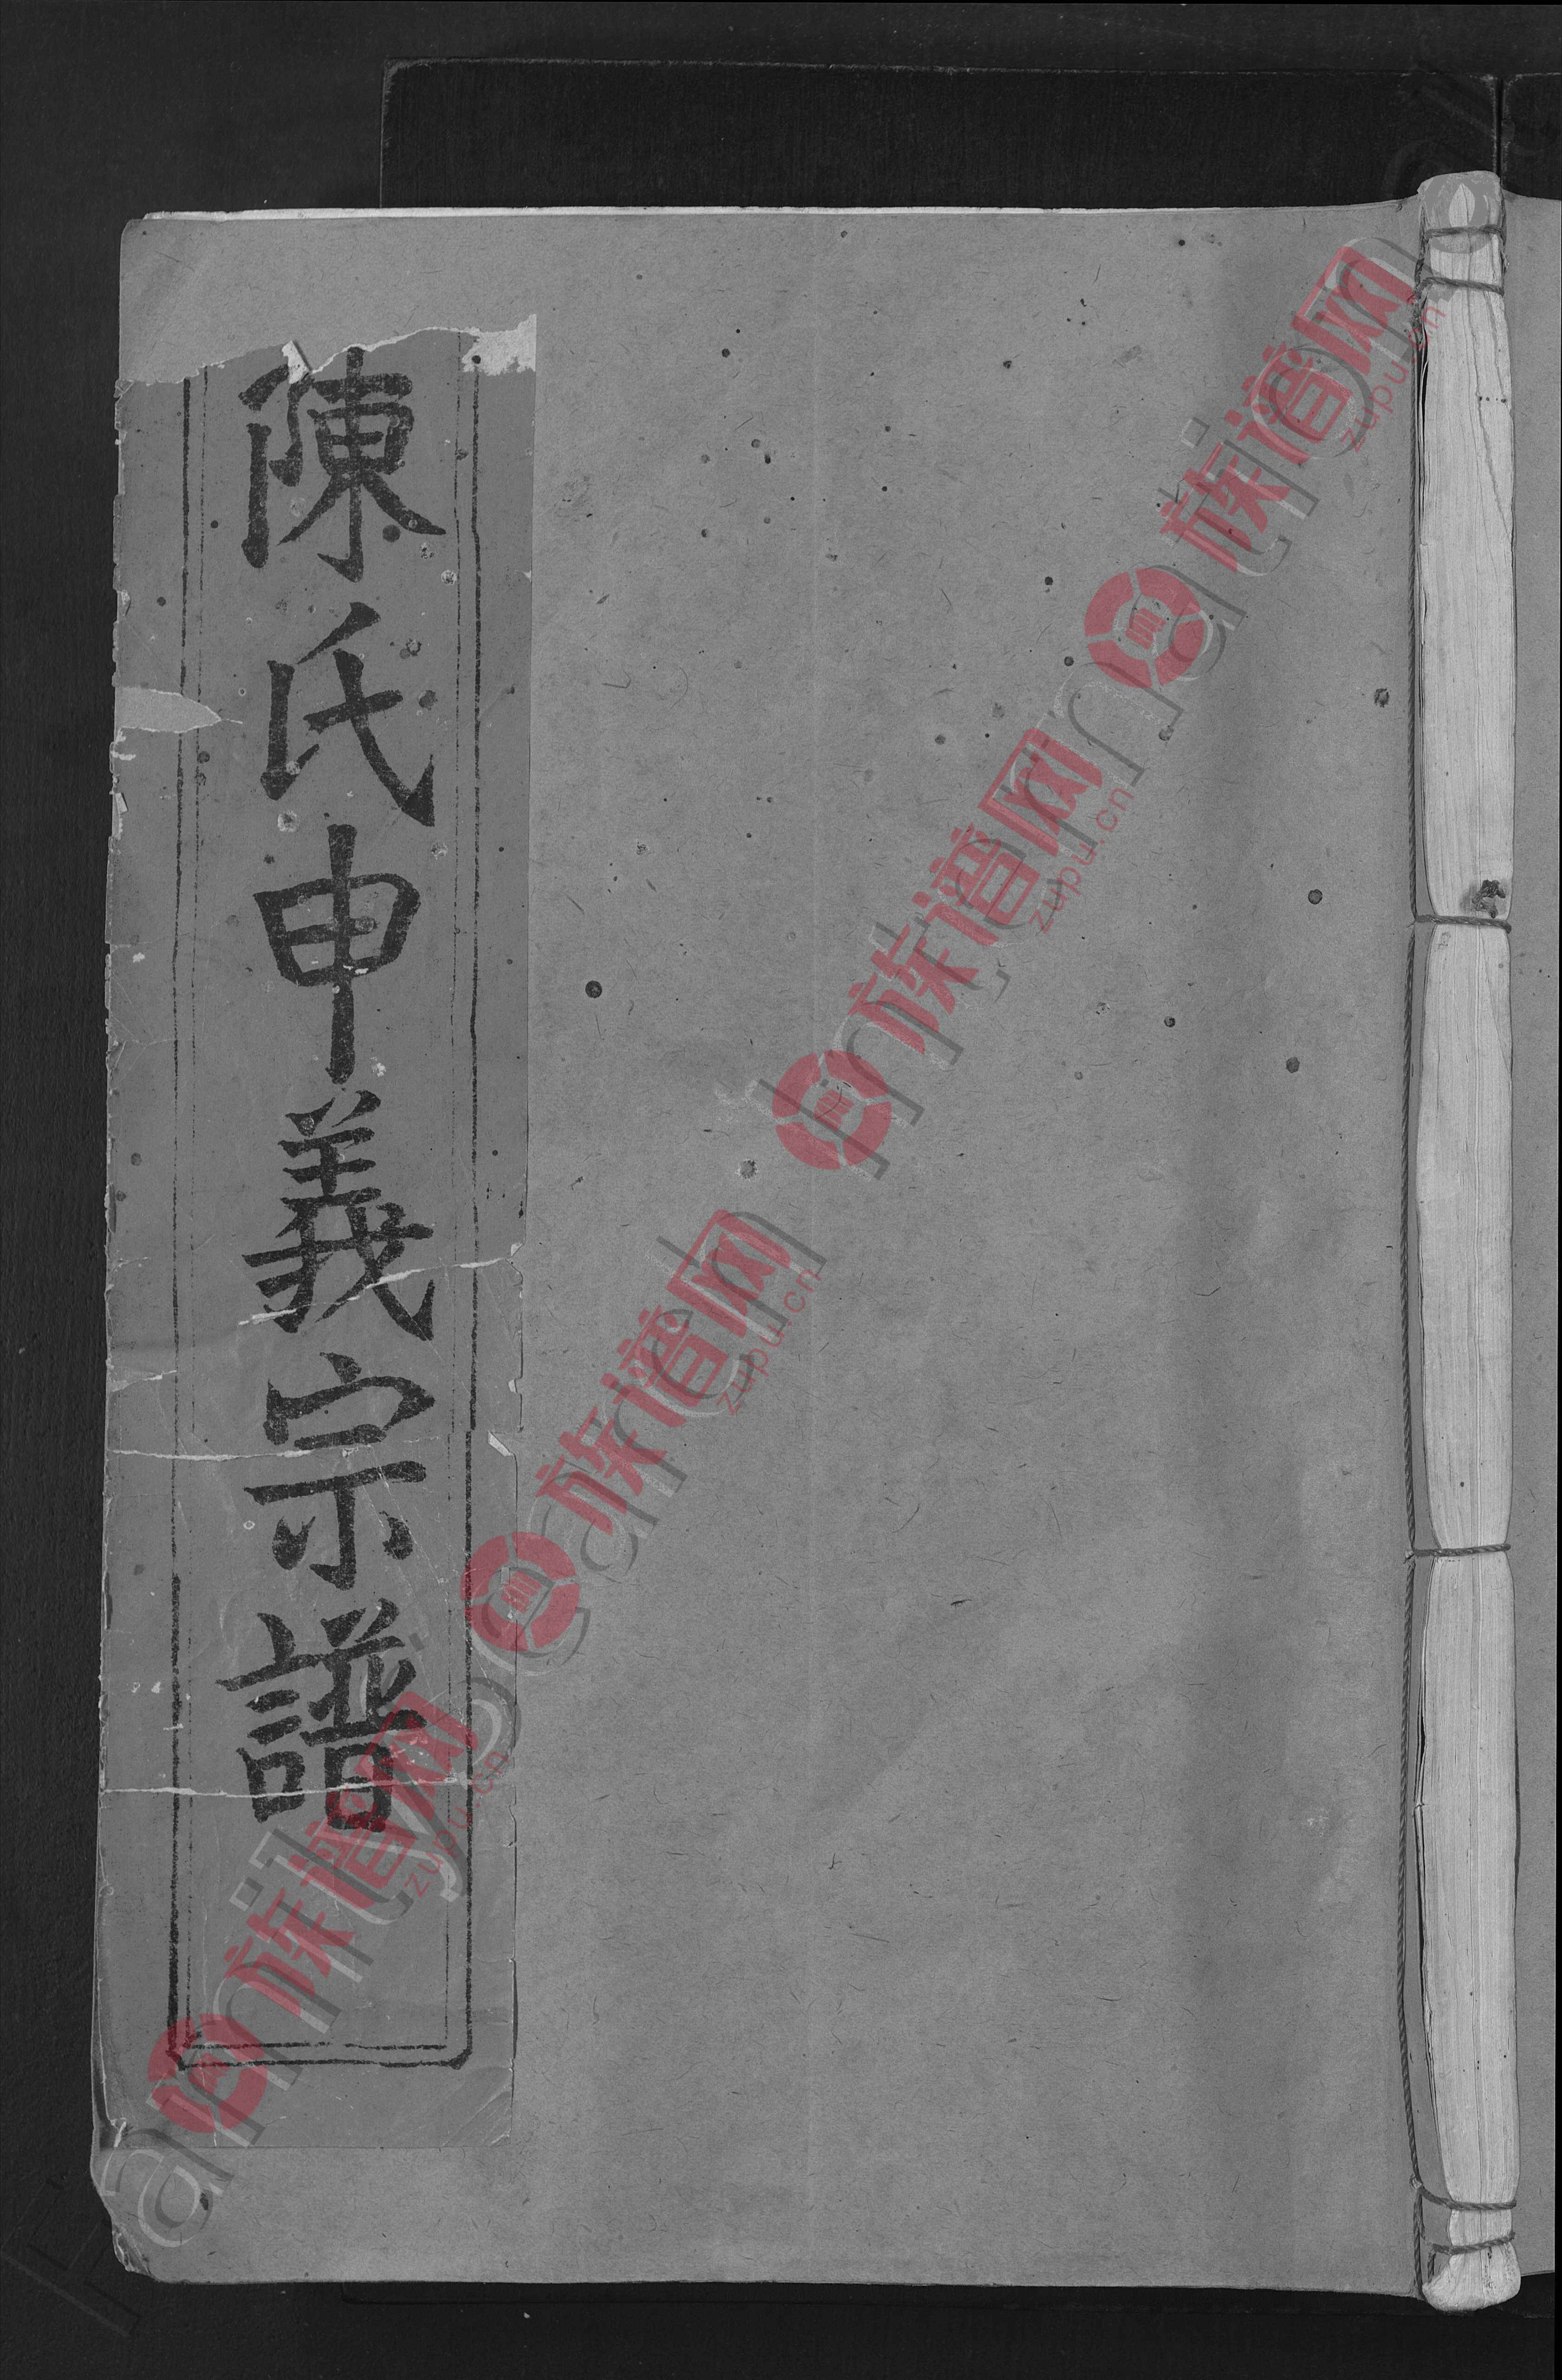 陳氏申義宗譜
族谱网
zupu.cn
族谱网
zupu.cn
族谱网
zupu.cn
族谱网
zupu.cn